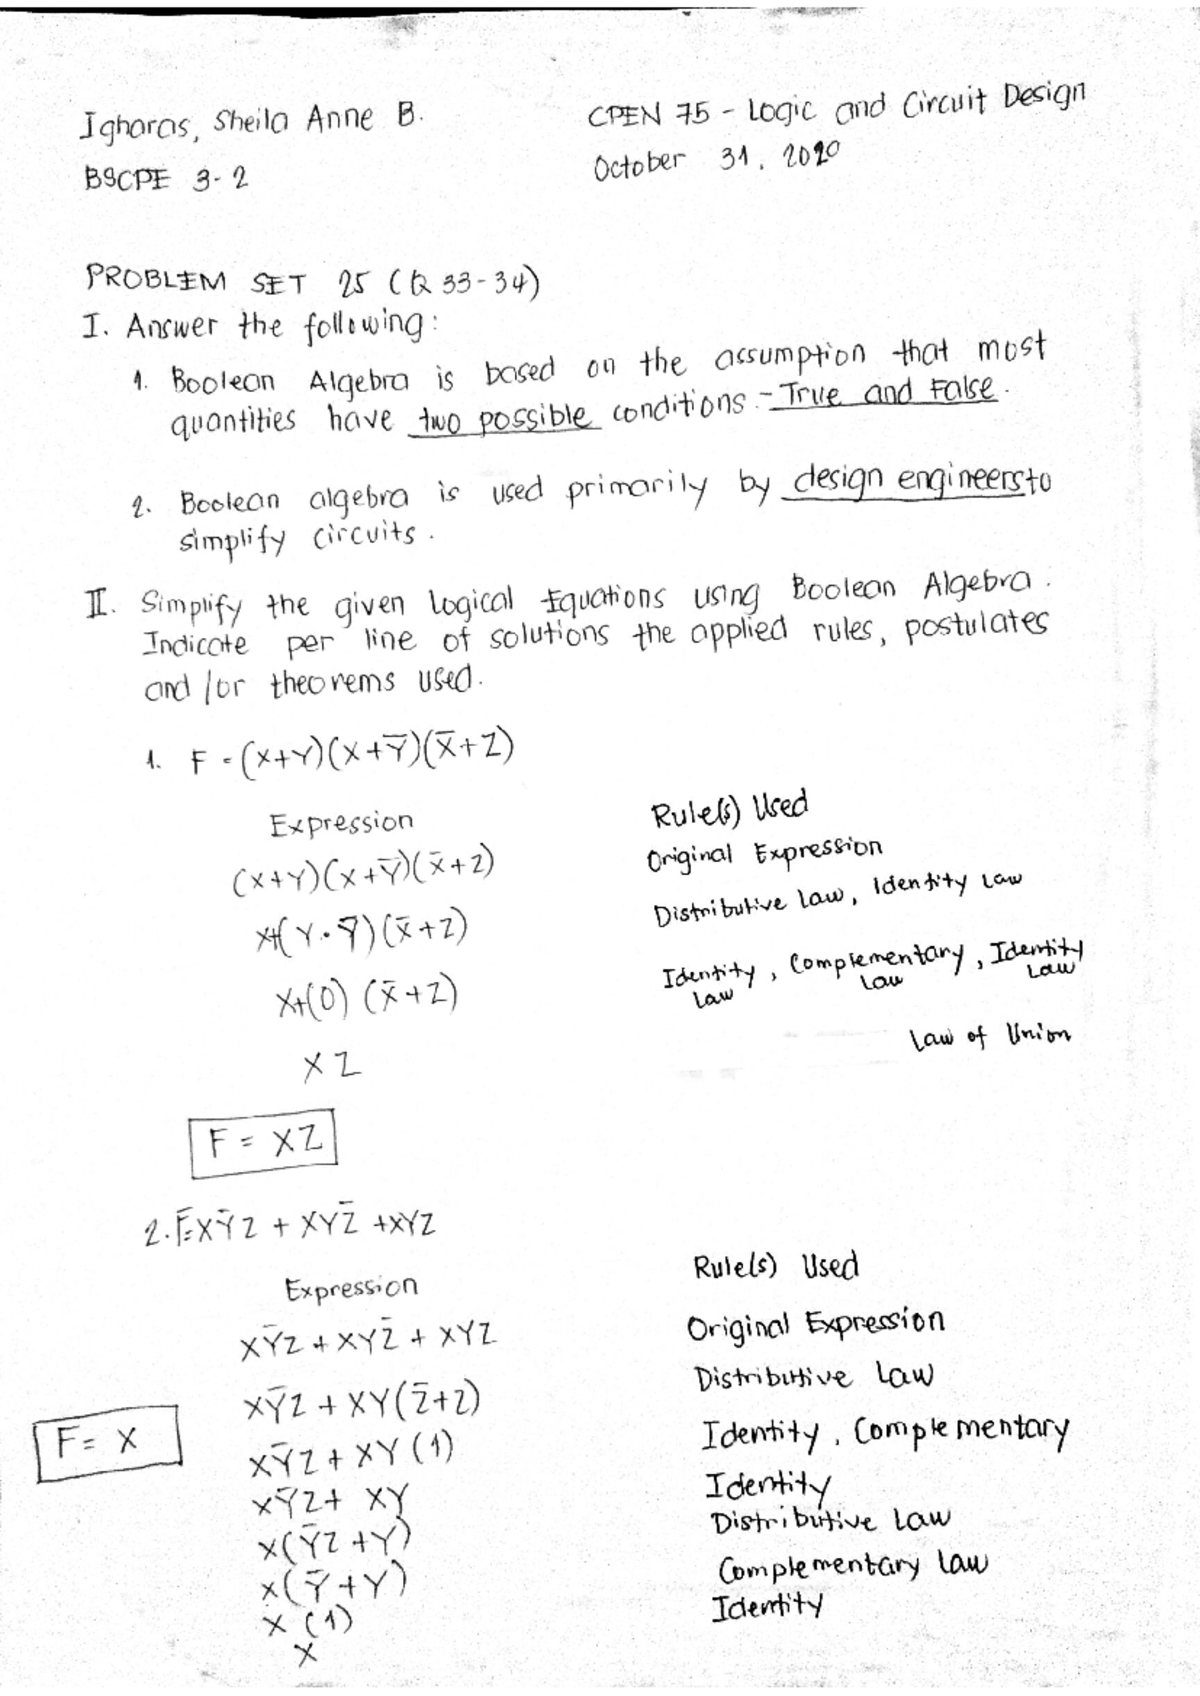 Igharas, Sheila Anne B.
CPEN 75 - Logic and Circuit Design
BSCPE 3-2
October 31, 2020
PROBLEM SET 25 (Q 33-34)
I. Answer the following:
1. Boolean Algebra is based on the assumption that most
quantities have two possible conditions - True and False.
2. Boolean algebra is used primarily by design engineers to
simplify circuits.
II. Simplify the given Logical Equations using Boolean Algebra.
Indicate per line of solutions the applied rules, postulates
and /or theorems used.
1. F = (X+Y)(X+Y̅)(X̅+Z)
Expression
Rule(s) Used
(X+Y)(X+Y̅)(X̅+Z)
Original Expression
X+(Y·Y̅)(X̅+Z)
Distributive Law, Identity Law
X+(0) (X̅+Z)
Identity Law, Complementary Law, Identity Law
XZ
Law of Union
F = XZ
2. F=XY̅Z + XYZ̅ +XYZ
Expression
Rule(s) Used
XY̅Z + XYZ̅ + XYZ
Original Expression
XY̅Z + XY(Z̅+Z)
Distributive Law
F= X
XY̅Z + XY (1)
Identity, Complementary
XY̅Z+ XY
Identity
X(Y̅Z +Y)
Distributive Law
X(Y̅+Y)
Complementary Law
X (1)
Identity
X